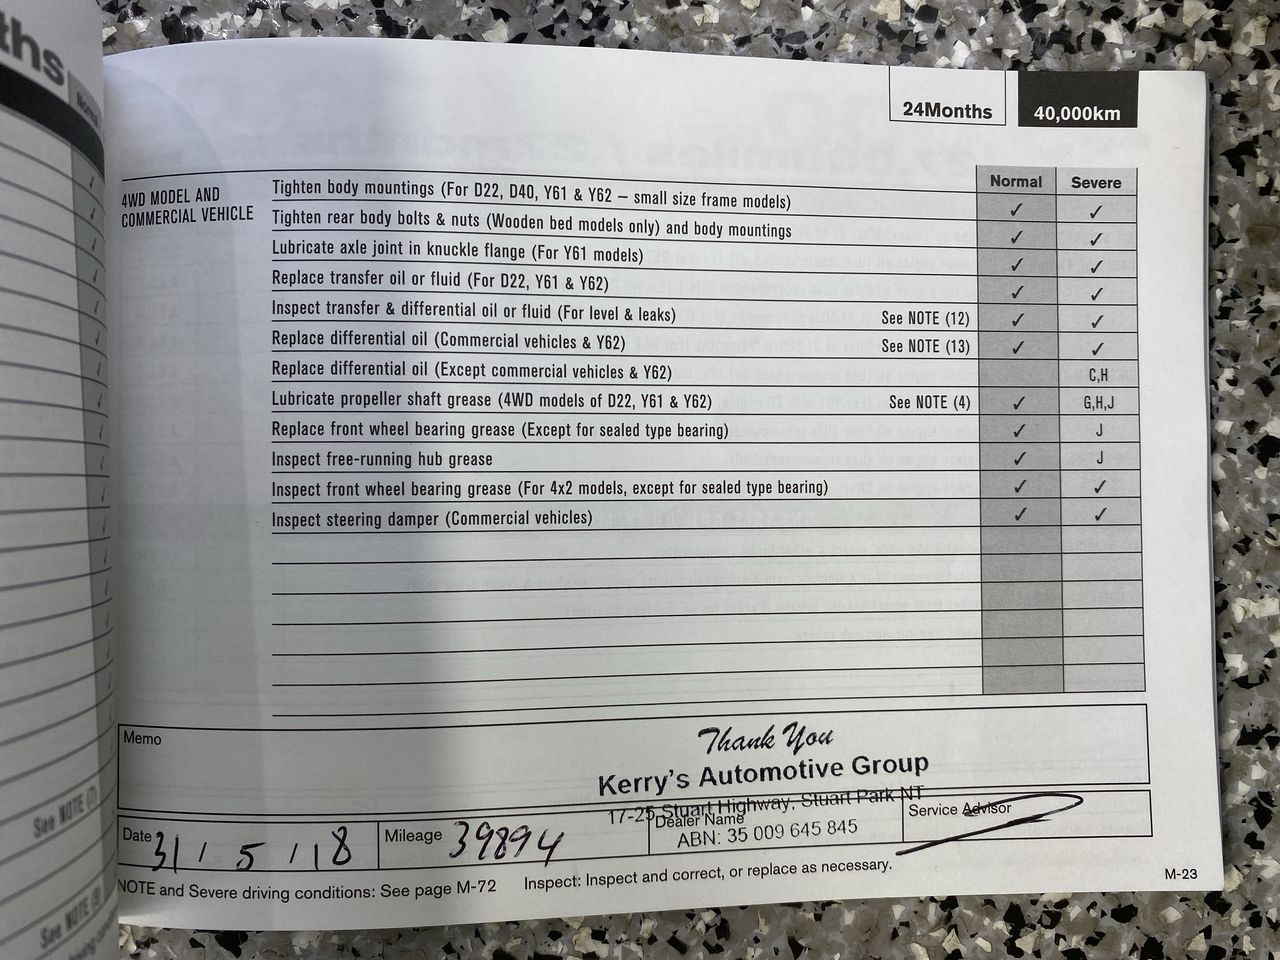 ths
Normal
24Months 40,000km
Normal Severe
4WD MODEL AND
COMMERCIAL VEHICLE
Tighten body mountings (For D22, D40, Y61 & Y62 – small size frame models) ✓ ✓
Tighten rear body bolts & nuts (Wooden bed models only) and body mountings ✓ ✓
Lubricate axle joint in knuckle flange (For Y61 models) ✓ ✓
Replace transfer oil or fluid (For D22, Y61 & Y62) ✓ ✓
Inspect transfer & differential oil or fluid (For level & leaks) See NOTE (12) ✓ ✓
Replace differential oil (Commercial vehicles & Y62) See NOTE (13) ✓ ✓
Replace differential oil (Except commercial vehicles & Y62) C,H
Lubricate propeller shaft grease (4WD models of D22, Y61 & Y62) See NOTE (4) ✓ G,H,J
Replace front wheel bearing grease (Except for sealed type bearing) ✓ J
Inspect free-running hub grease ✓ J
Inspect front wheel bearing grease (For 4x2 models, except for sealed type bearing) ✓ ✓
Inspect steering damper (Commercial vehicles) ✓ ✓
See NOTE (7)
Memo
Thank You
Kerry's Automotive Group
17-25 Stuart Highway, Stuart Park NT
ABN: 35 009 645 845
Date 31 / 5 / 18
Mileage 39894
Dealer Name
Service Advisor
NOTE and Severe driving conditions: See page M-72 Inspect: Inspect and correct, or replace as necessary.
M-23